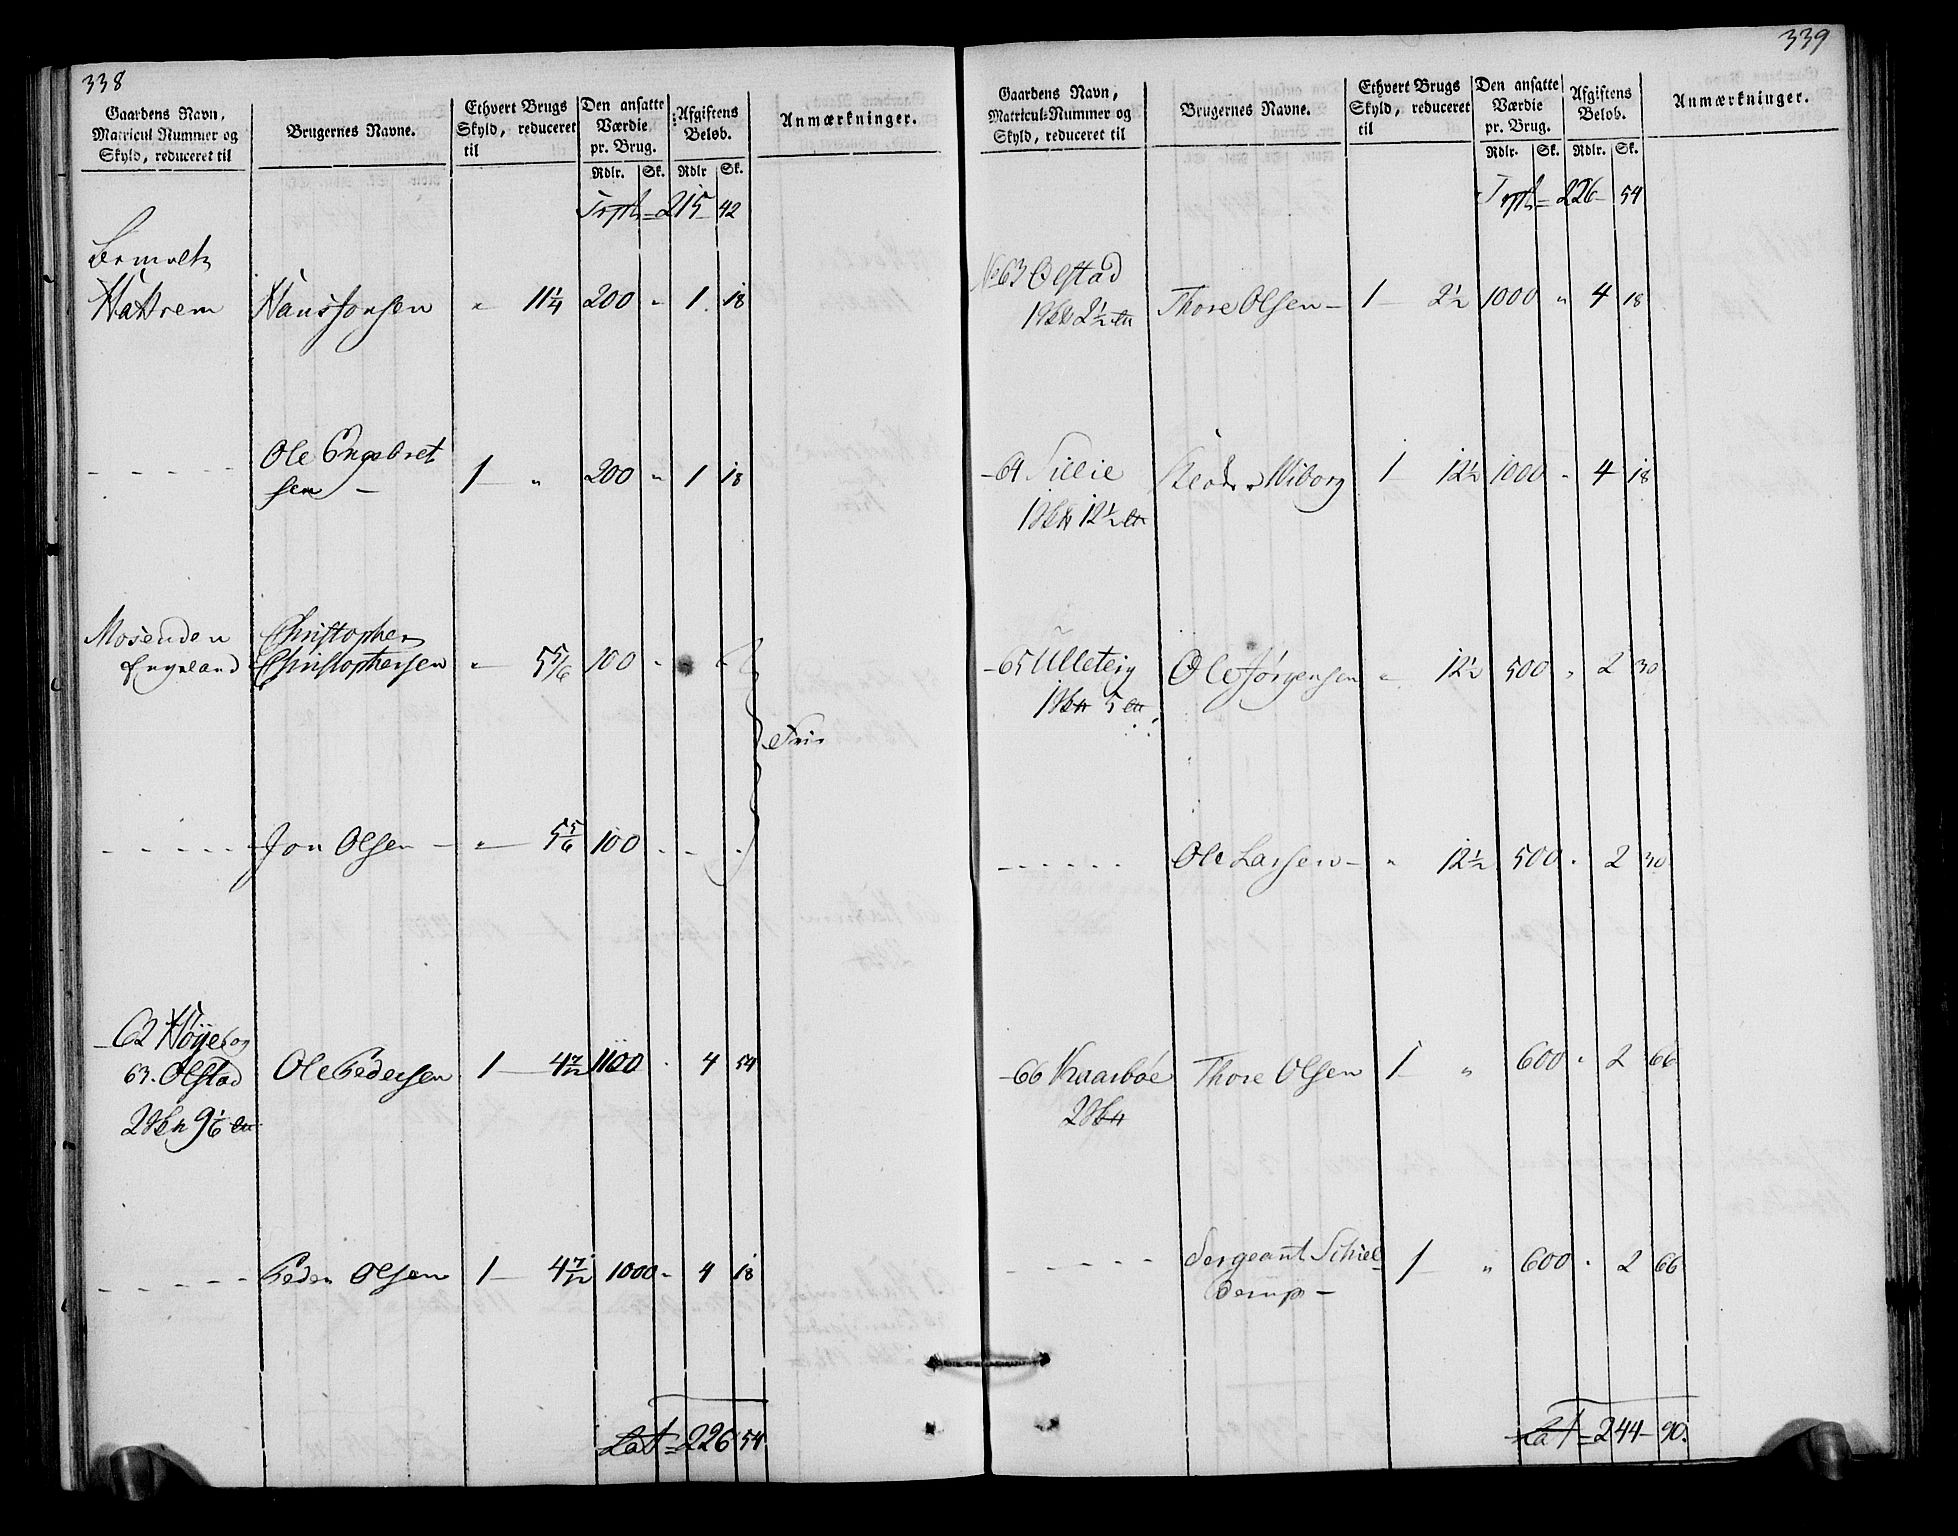 338
Gaardens Navn, Matricul Nummer og Skyld, reduceret til
Brugernes Navne.
Ethvert Brugs Skyld, reduceret til
Den ansatte Værdie pr. Brug.
Afgiftens Beløb.
Anmærkninger.
Rdlr. Sk. Rdlr Sk.
Trpt = 215 42
Hans Jonsen " 11 1/4 200 " 1 18
- - - - - Ole Engebret
sen - 1 - " 200 " 1 18
Mosenden Christopher
Engeland Christophersen " 5 5/6 100 " " "
Frie
- - - - - Jon Olsen - " 5 5/6 100 - - -
- 62 Høÿe og
63. Olstad Ole Pedersen 1 - 4 7/12 1100 " 4 54
9 1/6
- - - - - Peder Olsen 1 - 4 7/12 1000 " 4 18
Lat = 226 54
339
Gaardens Navn, Matricul-Nummer og Skyld, reduceret til
Brugernes Navne.
Ethvert Brugs Skyld, reduceret til
Den ansatte Værdie pr. Brug.
Afgiftens Beløb.
Anmærkninger.
Rdlr. Sk. Rdlr. Sk.
Trpt = 226 - 54
No 63 Olstad
Thore Olsen - 1 - 2 1/2 1000 " 4 18
- 64 Lillie Wiborg 1 - 12 1/2 1000 " 4 18
12 1/2
- 65 Ulleteig Ole Jørgensen " 12 1/2 500 " 2 30
- - - - - Ole Larsen - " 12 1/2 500 " 2 30
- 66 Kraarbøe Thore Olsen 1 - " 600 " 2 66
- - - - - Sergeant Schiel-
derup - 1 - " 600 " 2 66
Lat = 244 - 90.